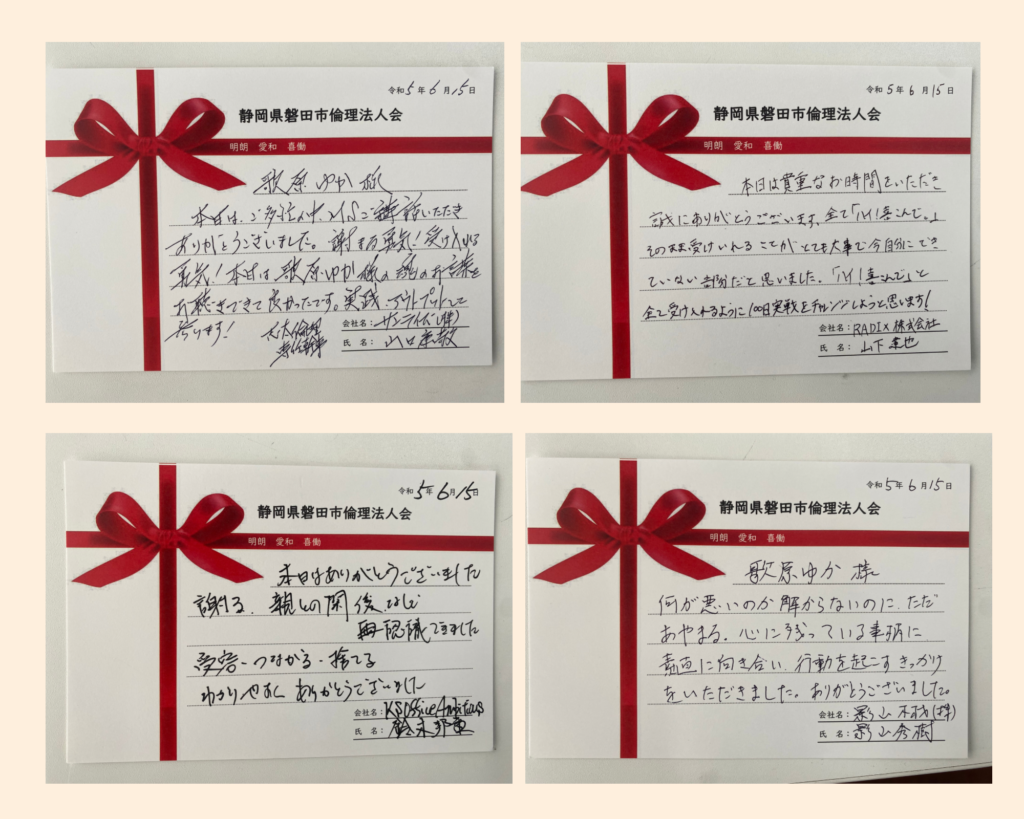 令和5年6月15日
静岡県磐田市倫理法人会
明朗 愛和 喜働
歌原ゆか様
本日は、ご多忙の中、MSご講話いただき
ありがとうございました。謝する勇気!受け入れる
勇気!本日は歌原ゆか様の魂のお言葉を
お聴きできて良かったです。実践、アウトプットして
参ります!
会社名:サンライズ(株)
氏名:山口
令和5年6月15日
静岡県磐田市倫理法人会
明朗 愛和 喜働
本日は貴重なお時間をいただき
誠にありがとうございます。全て「ハイ!喜こんで。」
そのまま受けいれることがとても大事で今自分にでき
ていない部分だと思いました。「ハイ!喜こんで」と
全て受け入れるように100日実戦をチャレンジしようと思います!
会社名:RADIX株式会社
氏名:山下 也
令和5年6月15日
静岡県磐田市倫理法人会
明朗 愛和 喜働
本日はありがとうございました
謝る、親との関係など
再認識できました
受容・つながる・捨てる
わかりやすく ありがとうございました
会社名:KSOffice
氏名:鈴木邦
令和5年6月15日
静岡県磐田市倫理法人会
明朗 愛和 喜働
歌原ゆか様
何が悪いのか解からないのに、ただ
あやまる。心に残っている事柄に
素直に向き合い、行動を起こすきっかけ
をいただきました。ありがとうございました。
会社名:影山木材(株)
氏名:影山秀樹